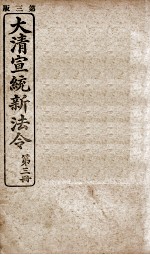 第三版
大清宣統新法令
第三冊